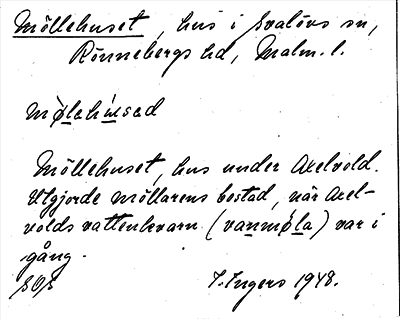 Möllehuset, hus i Svalövs sn,
Rönnebergs hd, Malm. l.
mø̀lahúsad
Möllehuset, hus under Axelvold.
Utgjorde möllarens bostad, när Axel-
volds vattenkvarn (vanmø̀la) var i
gång.
I. Ingers 1948.